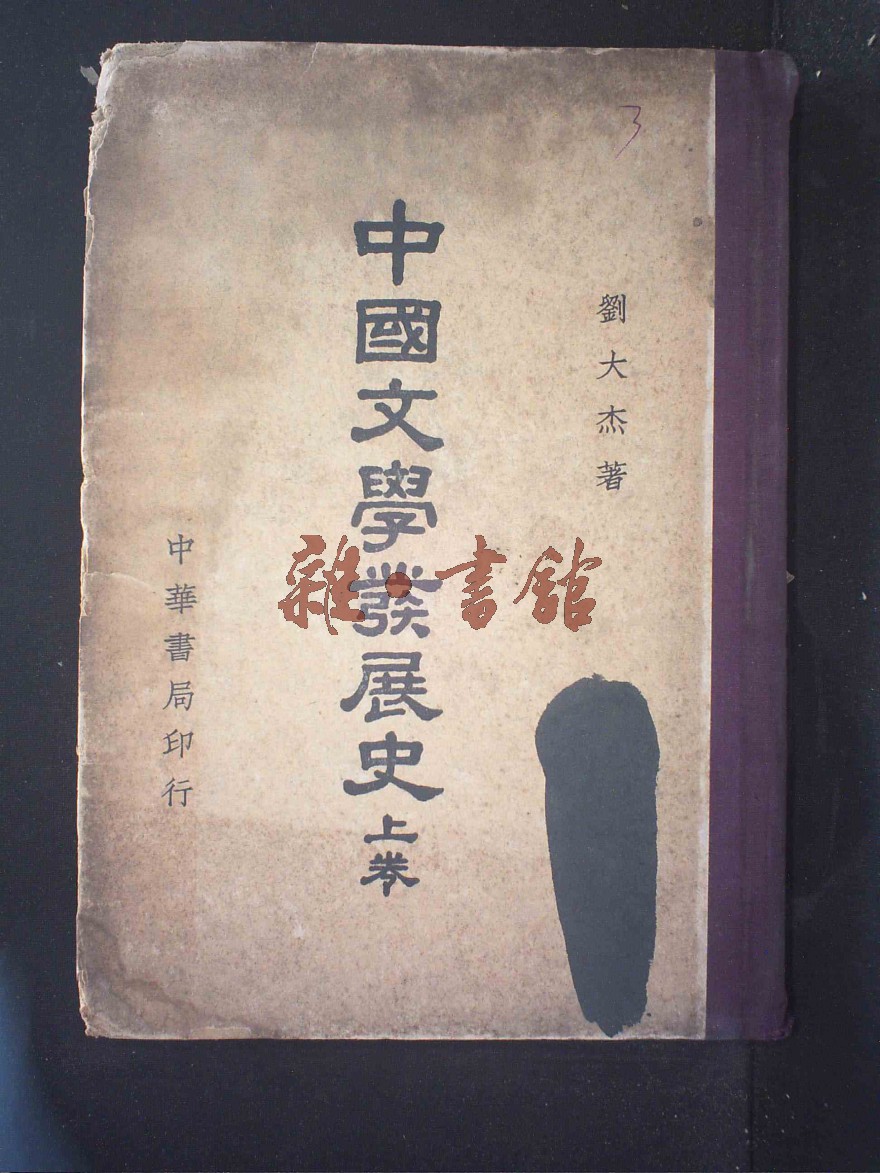 3
劉大杰著
中國文學發展史上卷
中華書局印行
雜·書舘